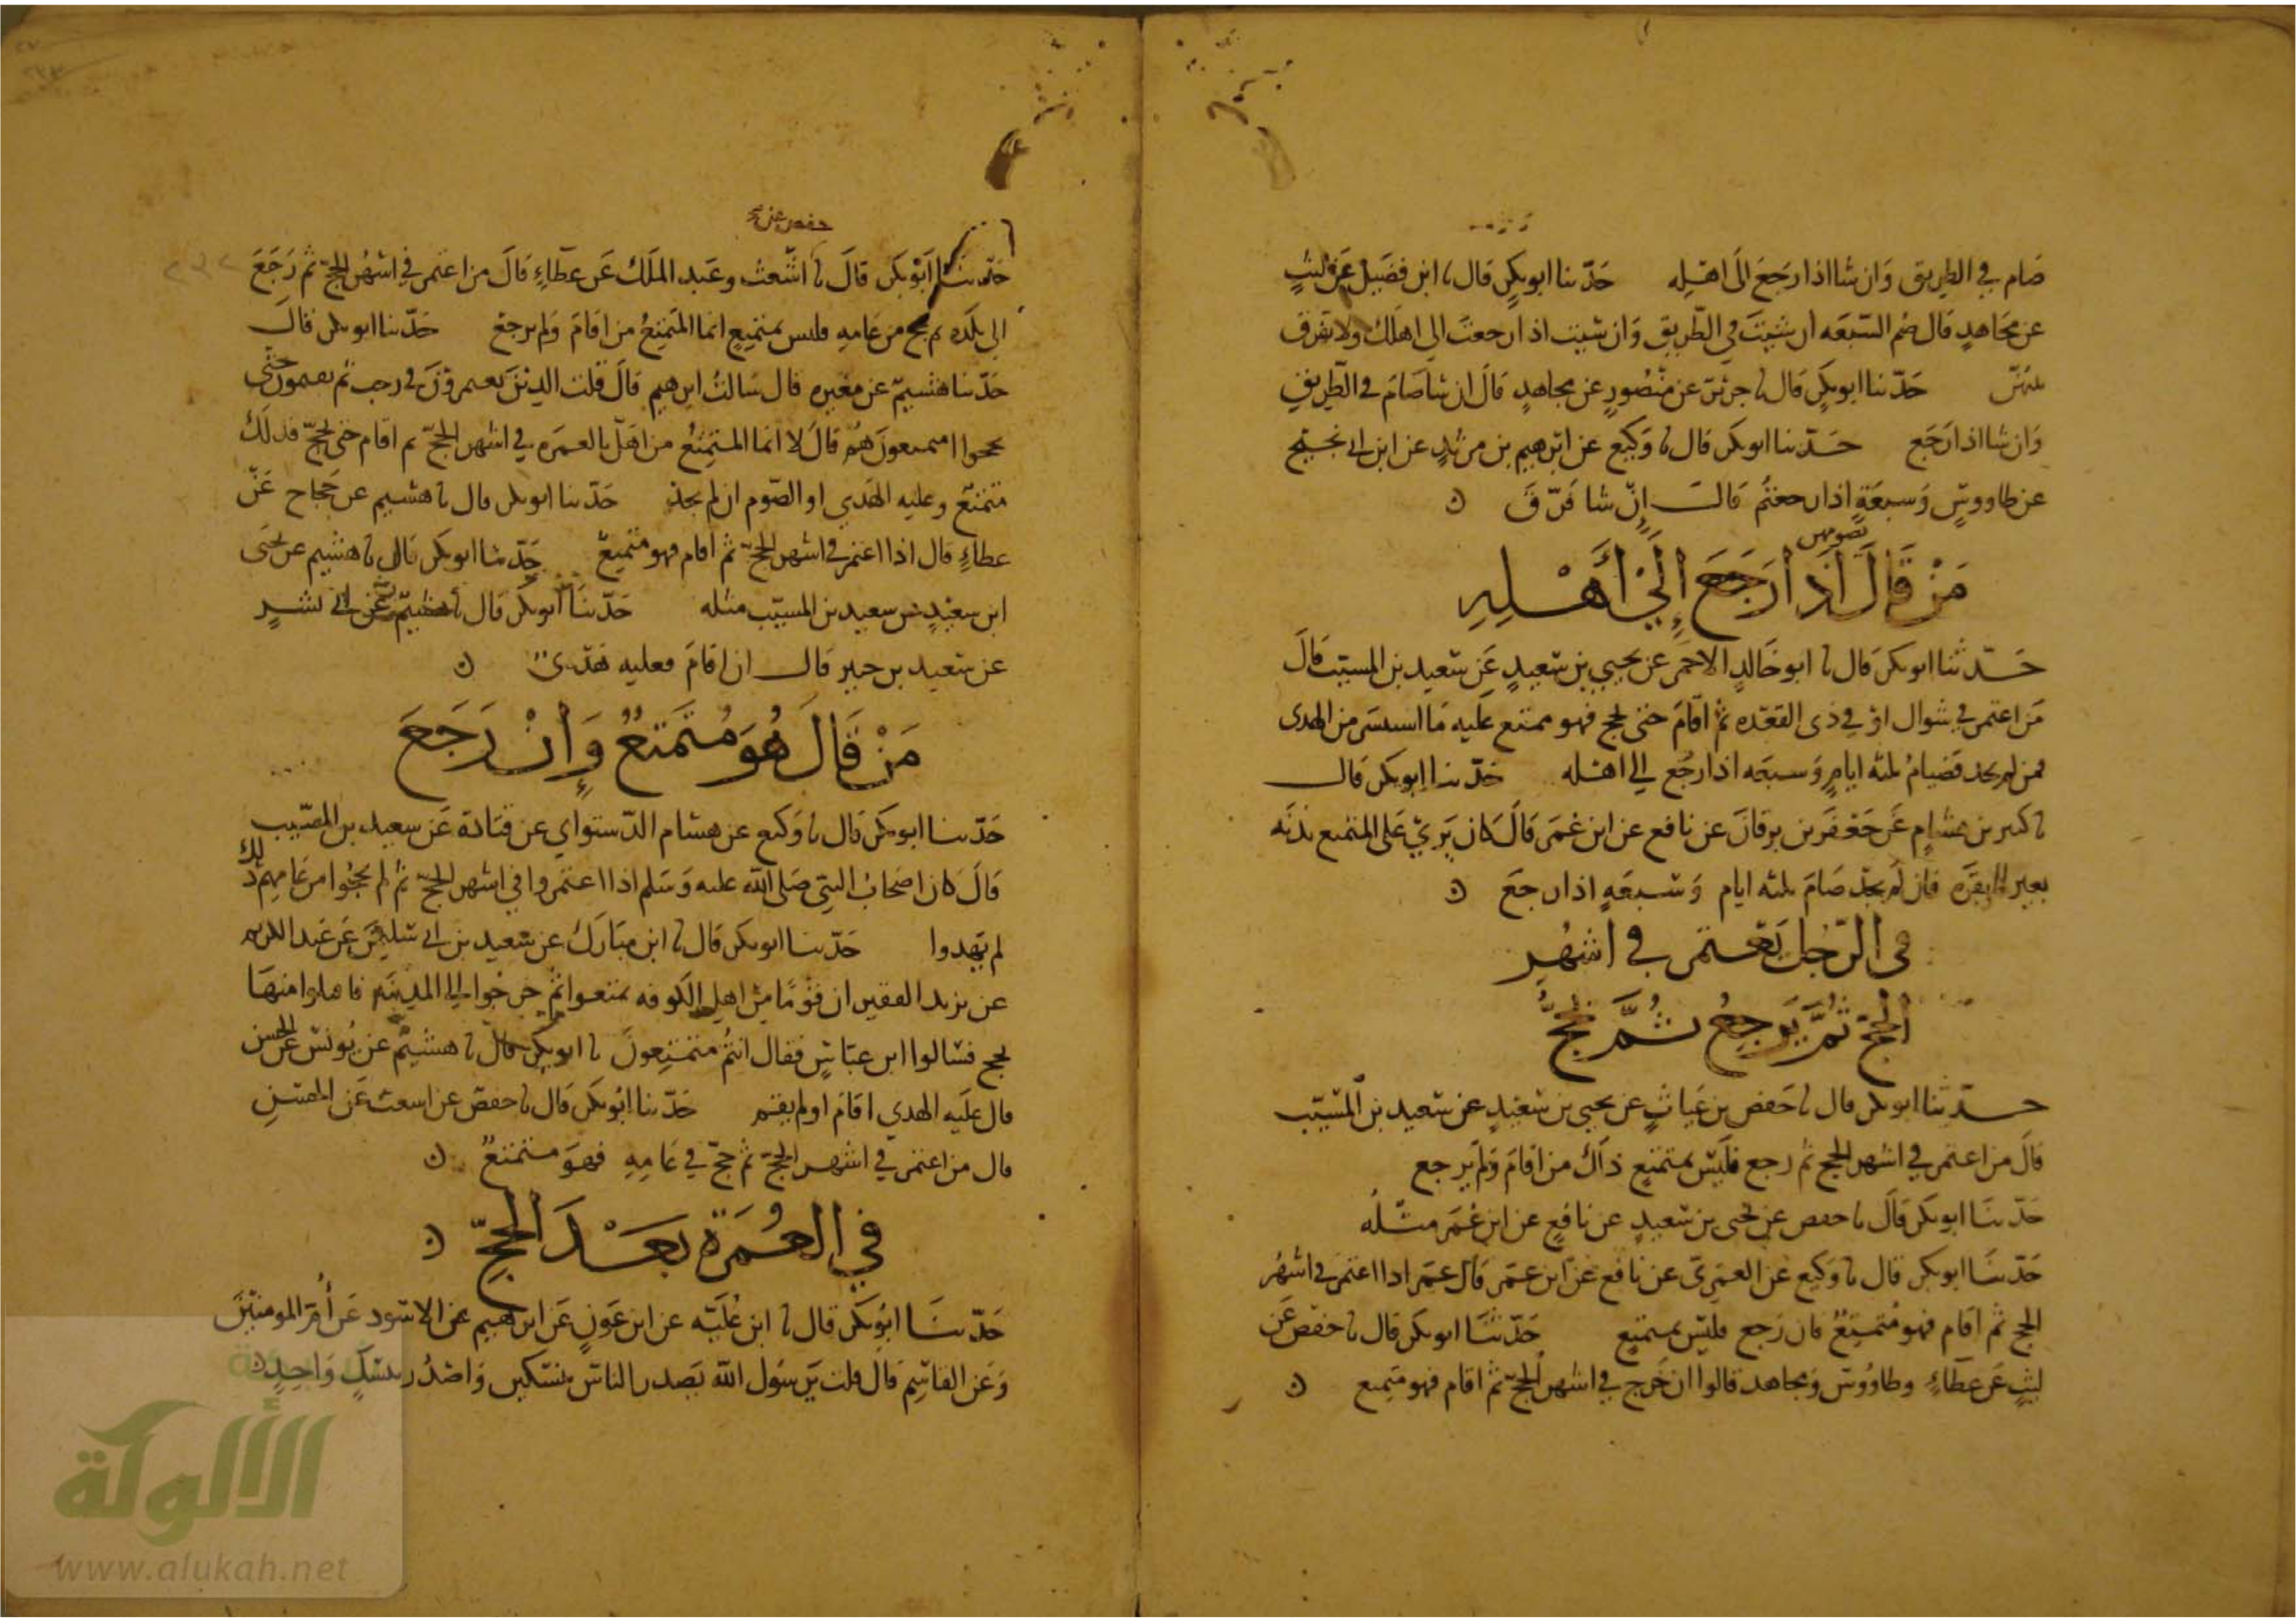 صام في الطريق وان شا اذا رجع الى اهله حدثنا ابو بكر قال نا ابن فضيل عن ليث
عن مجاهد قال صم السبعه ان شيت في الطريق وان شيت اذا رجعت الى اهلك ولا تفرق
بينهن حدثنا ابو بكر قال نا جرير عن منصور عن مجاهد قال ان شا صام في الطريق
وان شا اذا رجع حدثنا ابو بكر قال نا وكيع عن ابرهيم بن عن ابن ابي نجيح
عن طاووس وسبعة اذا رجعتم قال ان شا فرق ن
تصومهن
من قال اذا رجع إلى أهله
حدثنا ابو بكر قال نا ابو خالد الاحمر عن يحيي بن سعيد عن سعيد بن المسيب قال
من اعتمر في شوال او في ذى القعده ثم اقام حتى يحج فهو متمتع عليه ما استيسر من الهدى
فمن لم يجد فصيام ثلثه ايام وسبعه اذا رجع الي اهله حدثنا ابو بكر قال
نا كثير بن هشام عن جعفر بن برقان عن نافع عن ابن عمر قال كان يري على المتمتع بدنه
بعير او بقره فان لم يجد صام ثلثه ايام وسبعه اذا رجع ن
في الرجل يعتمر في اشهر
الحج ثم يرجع ثم يحج
حدثنا ابو بكر قال نا حفص بن غياث عن يحيي بن سعيد عن سعيد بن المسيب
قال من اعتمر في اشهر الحج ثم رجع فليس بمتمتع ذاك من اقام ولم يرجع
حدثنا ابو بكر قال نا حفص عن يحيى بن سعيد عن نافع عن ابن عمر مثله
حدثنا ابو بكر قال نا وكيع عن العمرى عن نافع عن ابن عمر قال عمر اذا اعتمر في اشهر
الحج ثم اقام فهو متمتع فان رجع فليس بمتمتع حدثنا ابو بكر قال نا حفص عن
ليث عن عطاء وطاووس ومجاهد قالوا ان خرج في اشهر الحج ثم اقام فهو متمتع ن
حفص عن
حدثنا ابو بكر قال نا اشعث وعبد الملك عن عطاء قال من اعتمر في اشهر الحج ثم رجع
الى بلده ثم حج من عامه فليس بمتمتع انما المتمتع من اقام ولم يرجع حدثنا ابو بكر قال
حدثنا هشيم عن مغيره قال سالت ابرهيم قال قلت الذين يعتمرون في رجب ثم يقيمون حتى
يحجوا امتمتعون هم قال لا انما المتمتع من اهل بالعمره في اشهر الحج ثم اقام حتى يحج فذلك
متمتع وعليه الهدي او الصوم ان لم يجد حدثنا ابو بكر قال نا هشيم عن حجاج عن
عطاء قال اذا اعتمر في اشهر الحج ثم اقام فهو متمتع حدثنا ابو بكر قال نا هشيم عن يحيى
ابن سعيد عن سعيد بن المسيب مثله حدثنا ابو بكر قال نا هشيم عن ابي بشر
عن سعيد بن جبير قال ان اقام فعليه هدى ن
من قال هو متمتع وإن رجع
حدثنا ابو بكر قال نا وكيع عن هشام الدستواي عن قتادة عن سعيد بن المسيب
قال كان اصحاب النبي صلى الله عليه وسلم اذا اعتمروا في اشهر الحج ثم لم يحجوا من عامهم ذلك
لم يهدوا حدثنا ابو بكر قال نا ابن مبارك عن سعيد بن ابي عن عبد الكريم
عن يزيد الفقير ان قوما من اهل الكوفه تمتعوا ثم خرجوا الي المدينه فاهلوا منها
بحج فسالوا ابن عباس فقال انتم متمتعون نا ابو بكر قال نا هشيم عن يونس عن الحسن
قال عليه الهدي اقام او لم يقم حدثنا ابو بكر قال نا حفص عن اشعث عن الحسن
قال من اعتمر في اشهر الحج ثم حج في عامه فهو متمتع ن
في العمرة بعد الحج ن
حدثنا ابو بكر قال نا ابن عليه عن ابن عون عن ابرهيم عن الاسود عن أم المومنين
وعن القاسم قال قلت يرسول الله يصدر الناس بنسكين واصدر بنسك واحد ن
الألوكة
www.alukah.net